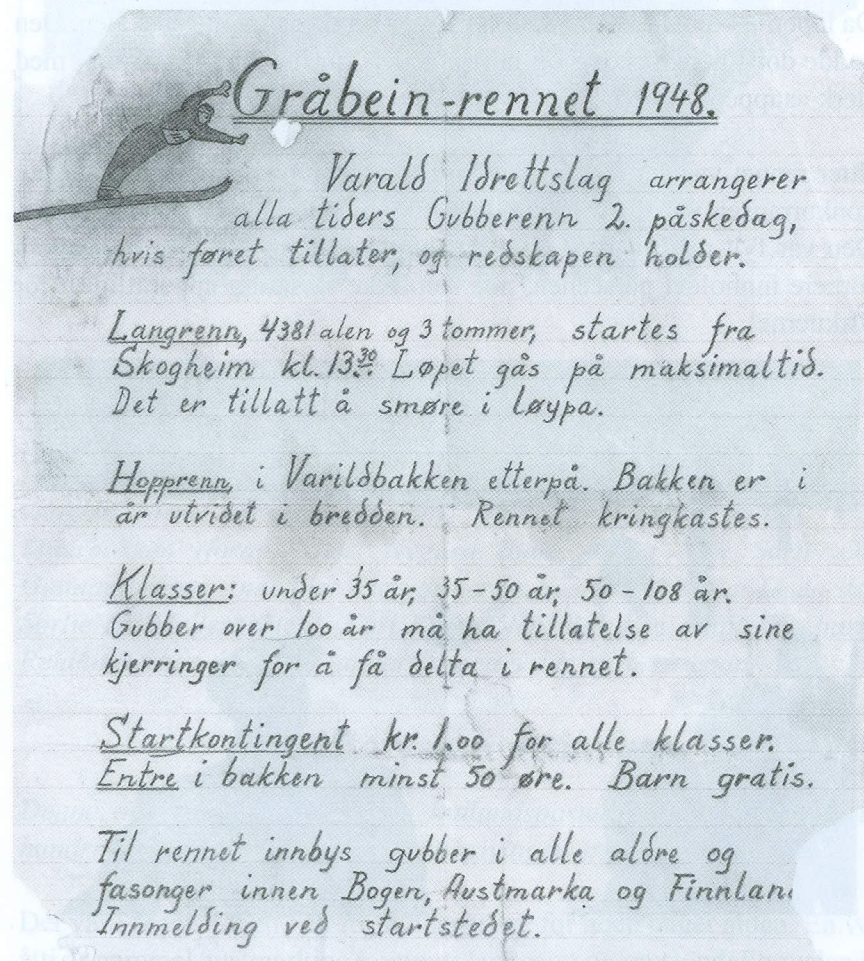 Gråbein-rennet 1948.
Varald Idrettslag arrangerer
alla tiders Gubberenn 2. påskedag,
hvis føret tillater, og redskapen holder.
Langrenn, 4381 alen og 3 tommer, startes fra
Skogheim kl. 13.30 Løpet gås på maksimaltid.
Det er tillatt å smøre i løypa.
Hopprenn, i Varildbakken etterpå. Bakken er i
år utvidet i bredden. Rennet kringkastes.
Klasser: under 35 år, 35-50 år, 50-108 år.
Gubber over 100 år må ha tillatelse av sine
kjerringer for å få delta i rennet.
Startkontingent kr. 1.00 for alle klasser.
Entre i bakken minst 50 øre. Barn gratis.
Til rennet innbys gubber i alle aldre og
fasonger innen Bogen, Austmarka og Finnlan
Innmelding ved startstedet.